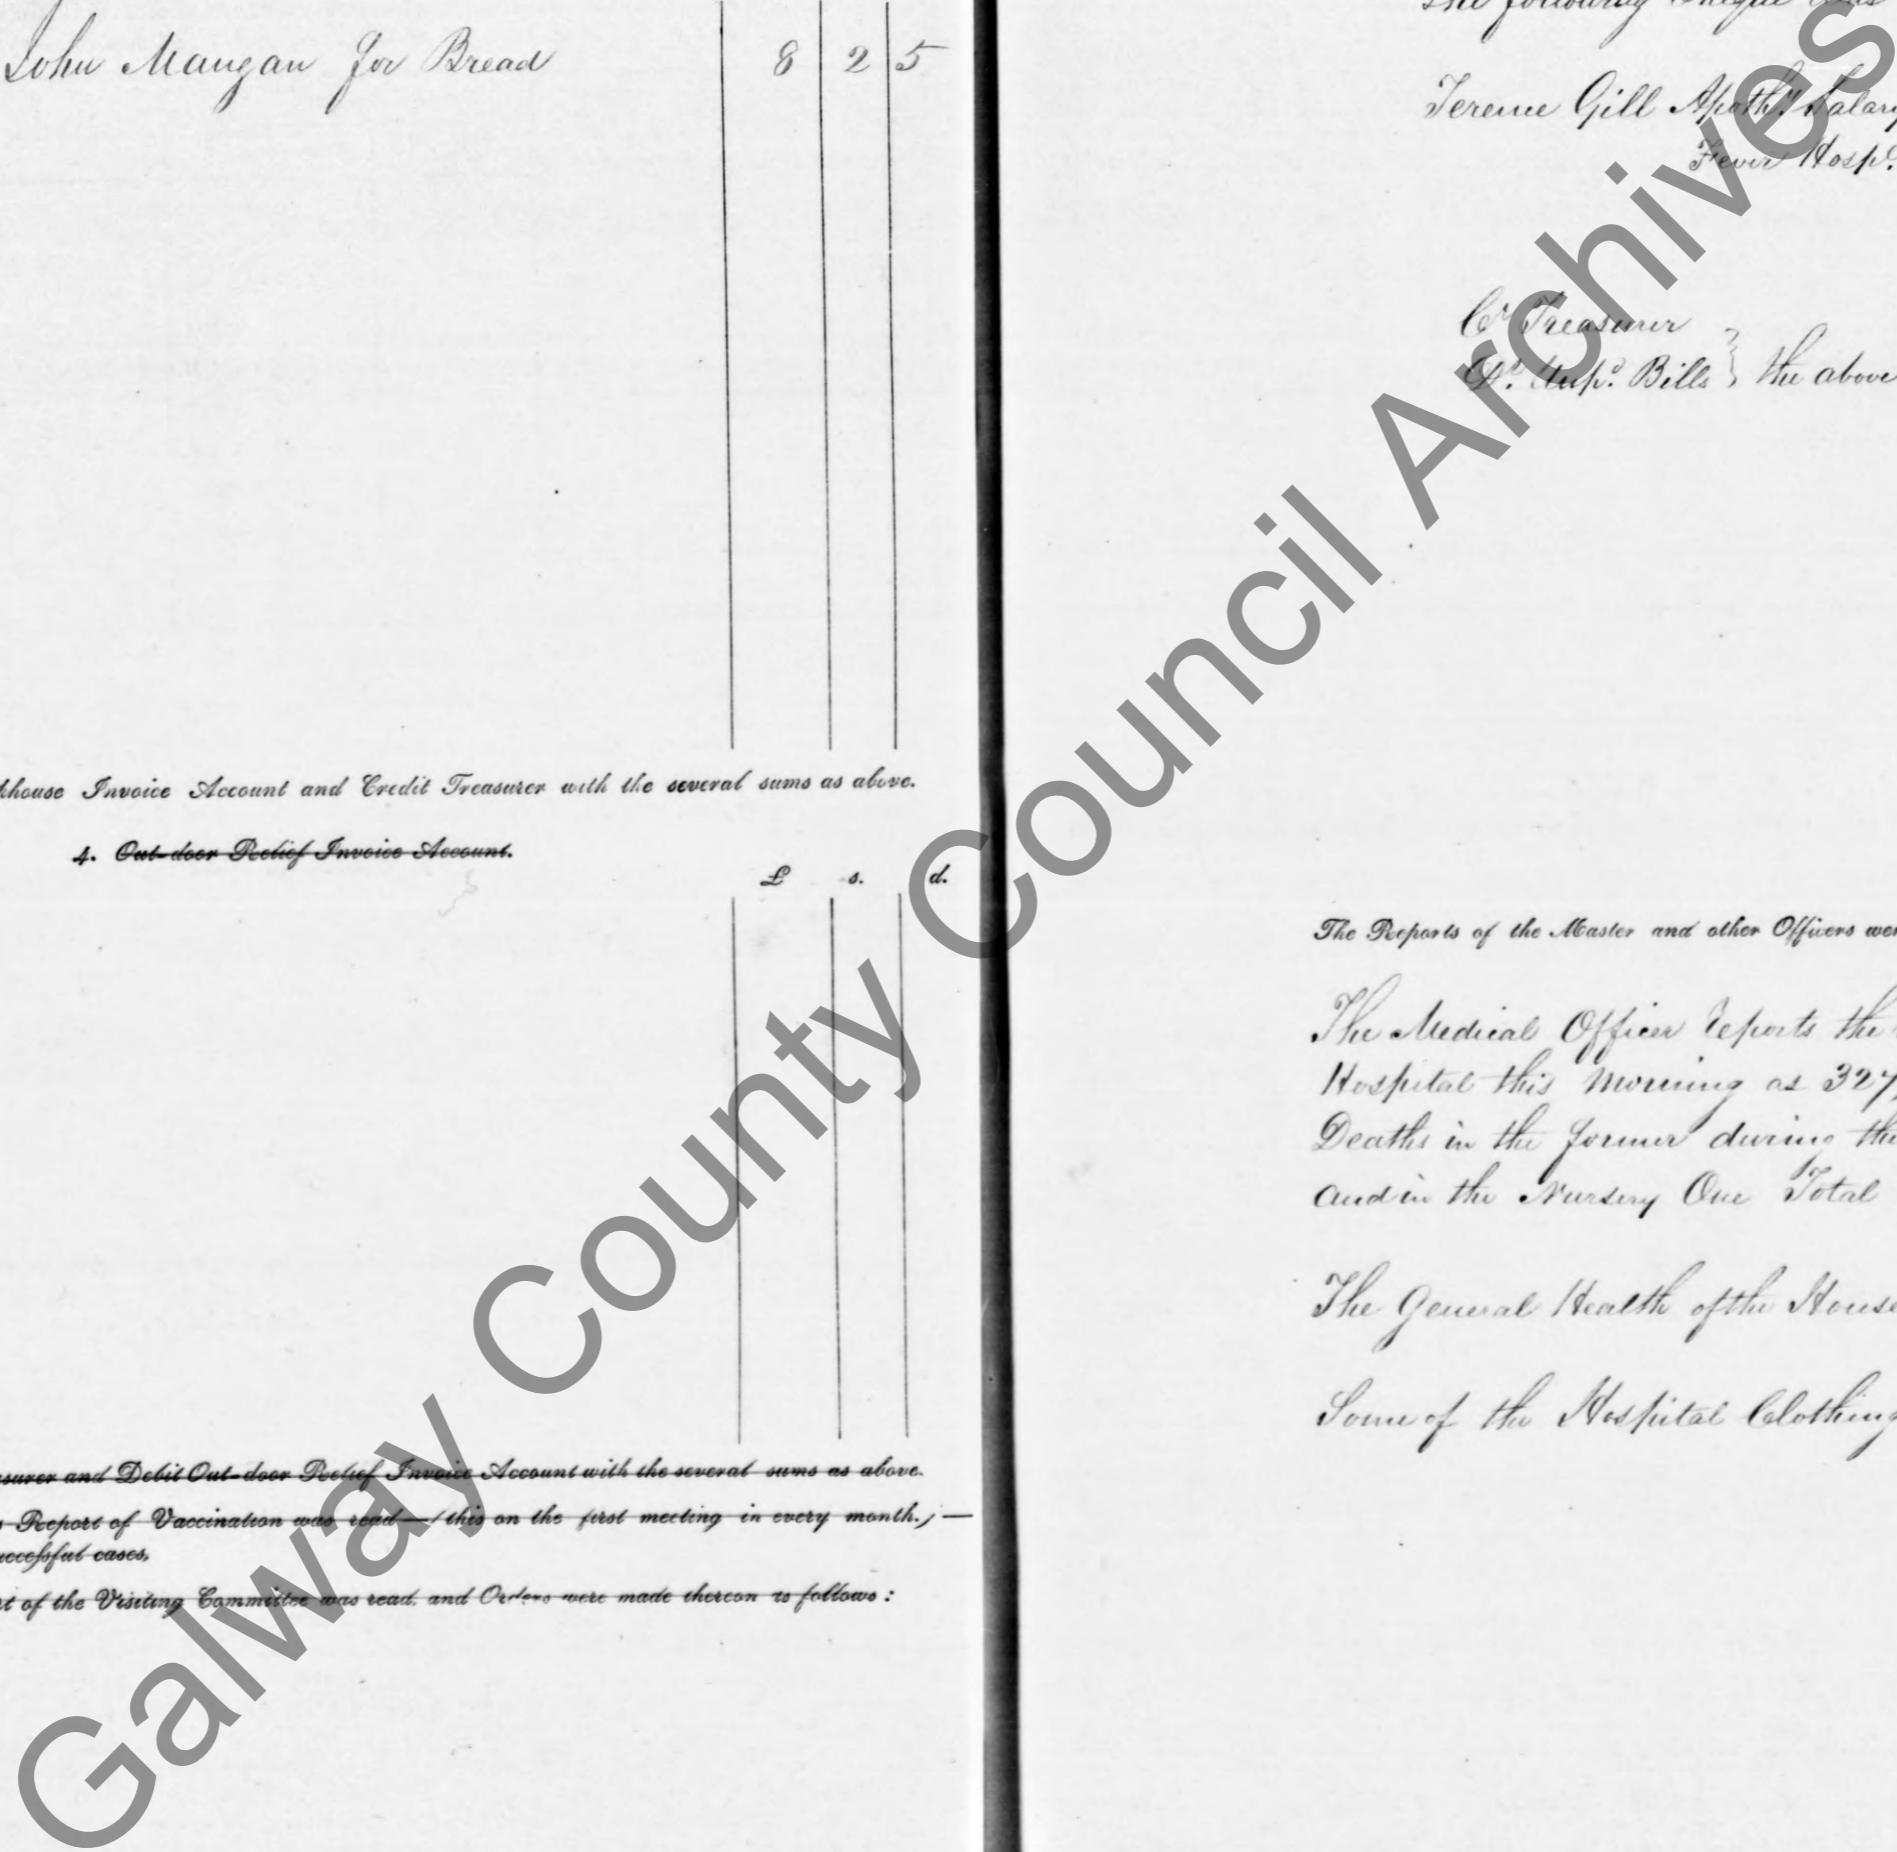 John Mangan for Bread 8 2 5
khouse Invoice Account and Credit Treasurer with the several sums as above.
4. Out-door Relief Invoice Account.
£ s. d.
surer and Debit Out-door Relief Invoice Account with the several sums as above.
Report of Vaccination was read—(this on the first meeting in every month.)—
uccessful cases,
rt of the Visiting Committee was read, and Orders were made thereon as follows:
The following Cheque was
Terence Gill Apothy. Salary
Fever Hosp.
Cr. Treasurer
Dr. Unpd. Bills } the above
The Reports of the Master and other Officers wer
The Medical Officer reports the
Hospital this Morning as 327,
Deaths in the former during the
and in the Nursery One Total
The General Health of the House
Some of the Hospital Clothing
Galway County Council Archives